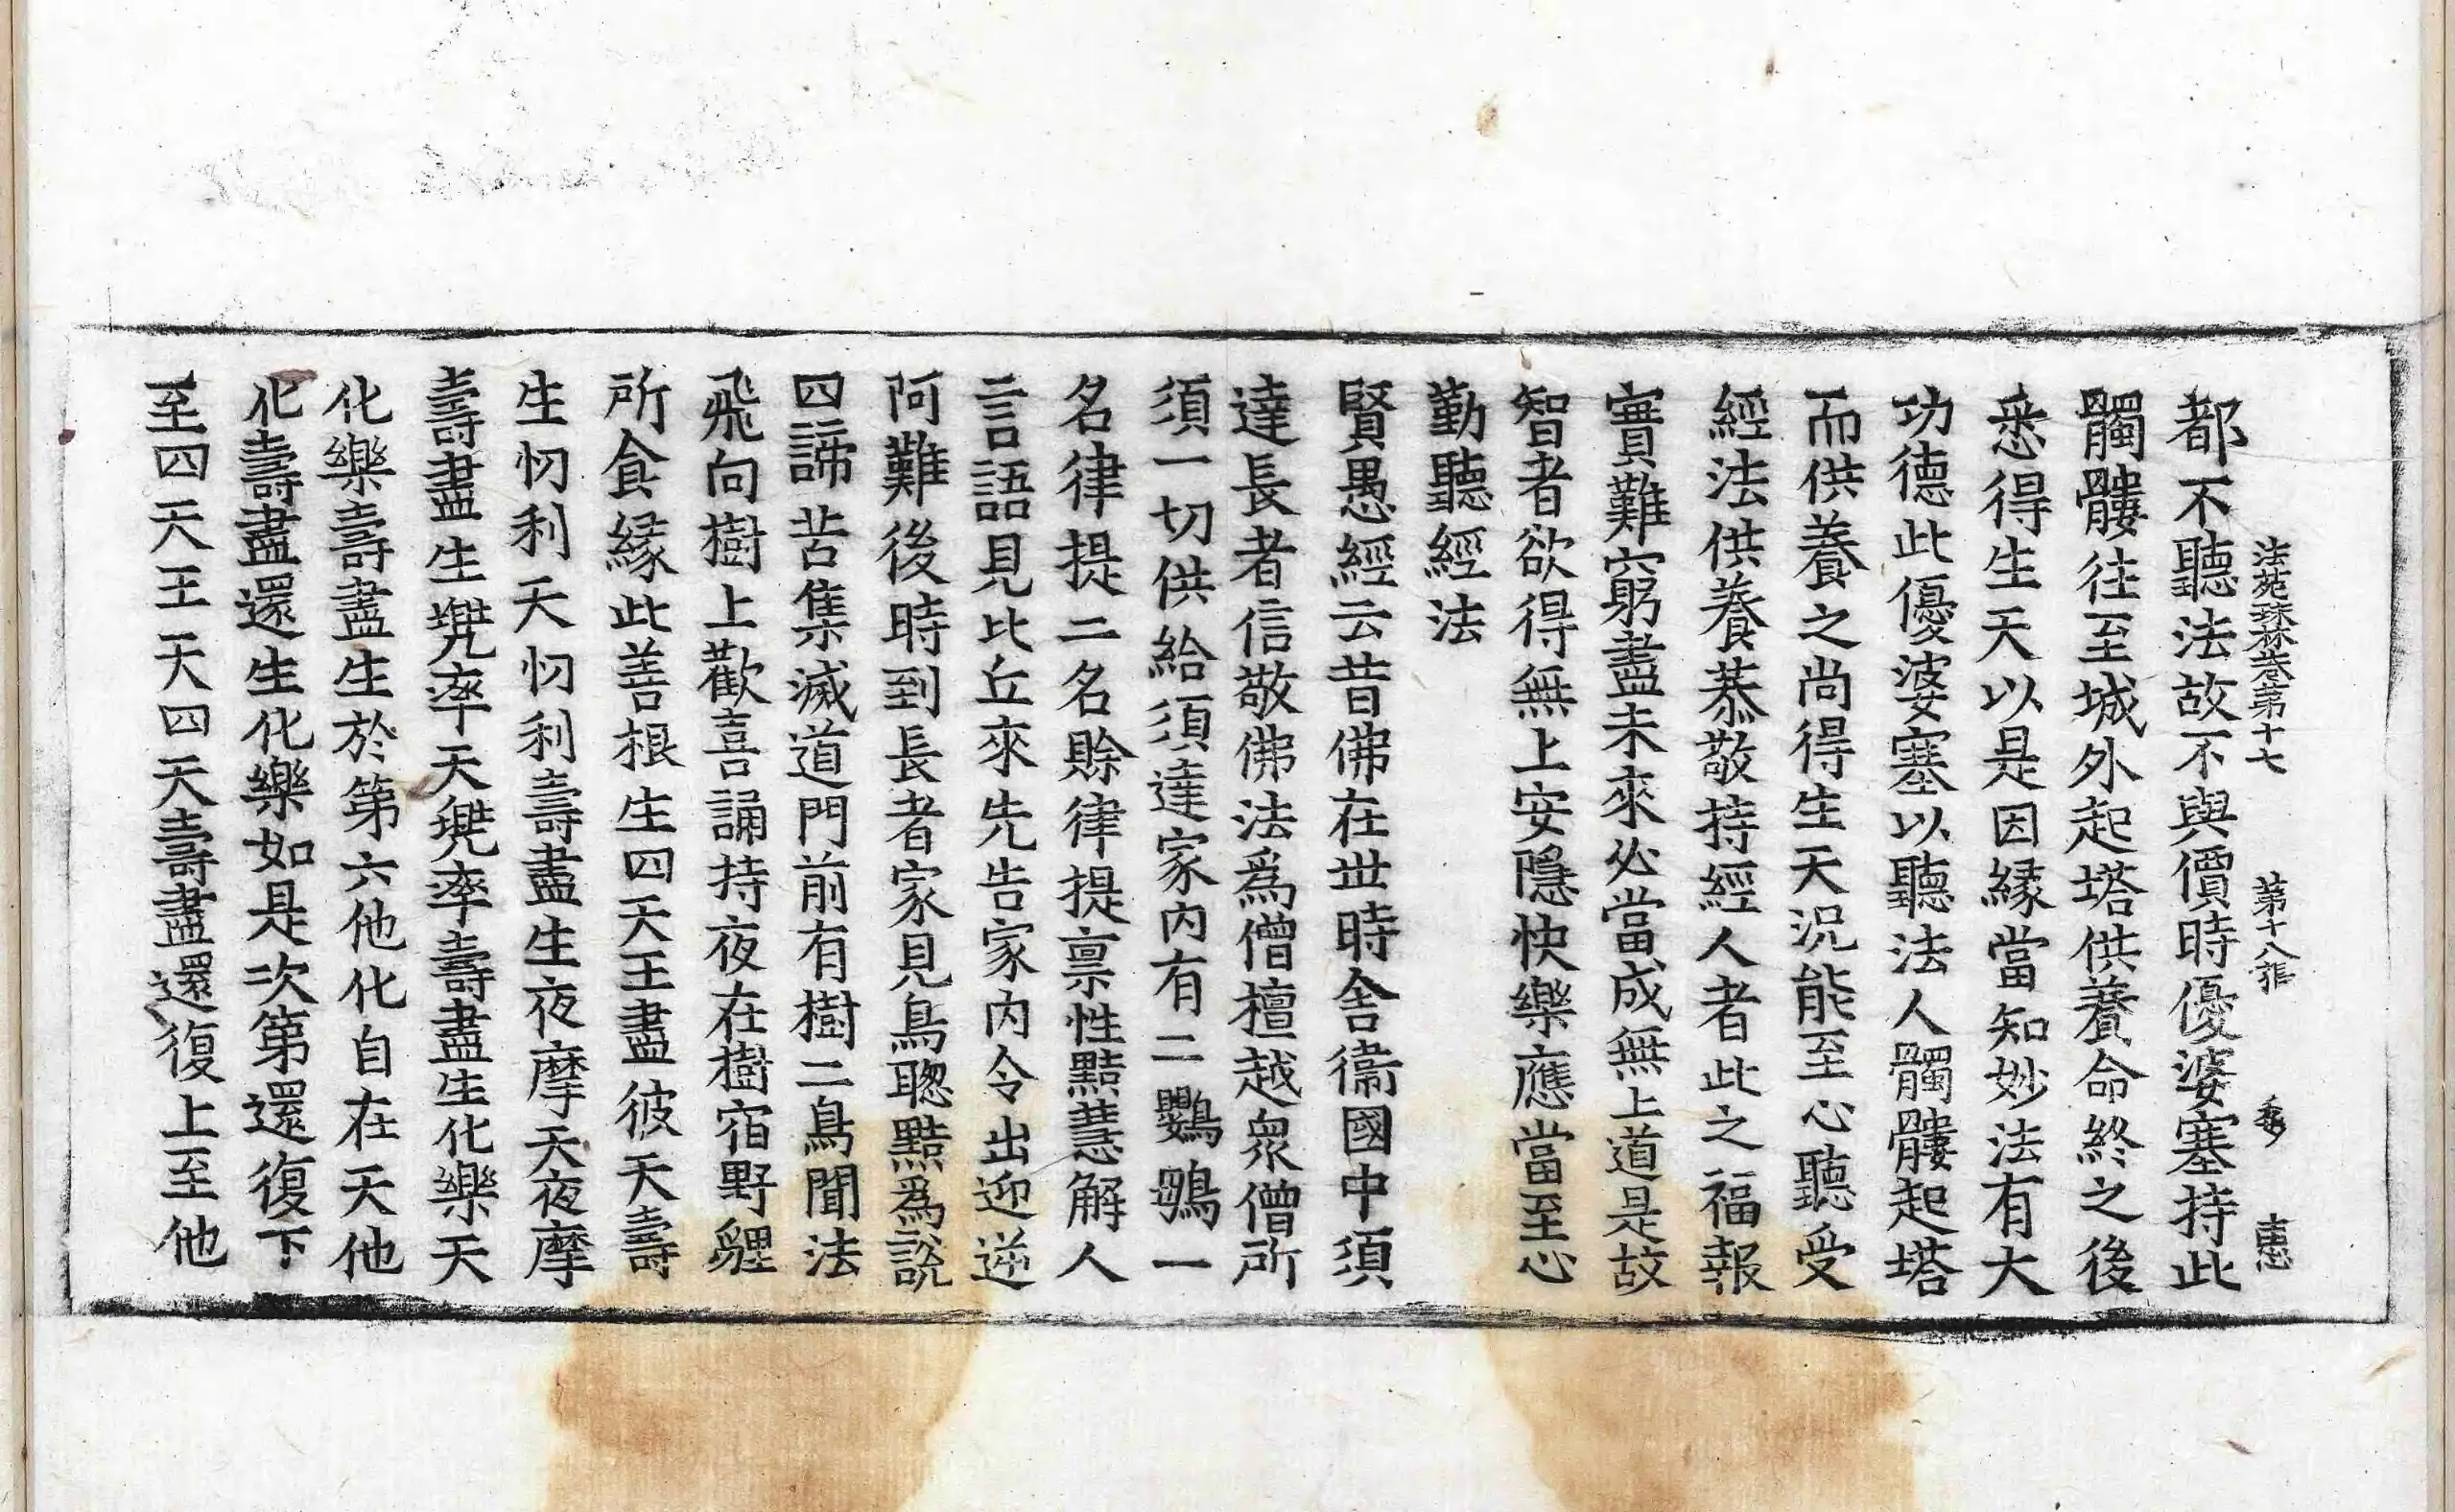 法苑珠林卷第十七　第十八張　　憲
都不聽法故不與價時優婆塞持此
髑髏往至城外起塔供養命終之後
悉得生天以是因緣當知妙法有大
功德此優婆塞以聽法人髑髏起塔
而供養之尚得生天況能至心聽受
經法供養恭敬持經人者此之福報
實難窮盡未來必當成無上道是故
智者欲得無上安隱快樂應當至心
勤聽經法
賢愚經云昔佛在世時舍衛國中須
達長者信敬佛法爲僧檀越衆僧所
須一切供給須達家內有二鸚鵡一
名律提二名賖律提禀性黠慧解人
言語見比丘來先告家內令出迎逆
阿難後時到長者家見鳥聦黠爲說
四諦苦集滅道門前有樹二鳥聞法
飛向樹上歡喜誦持夜在樹宿野貍
所食緣此善根生四天王盡彼天壽
生忉利天忉利壽盡生夜摩天夜摩
壽盡生兠率天兠率壽盡生化樂天
化樂壽盡生於第六他化自在天他
化壽盡還生化樂如是次第還復下
至四天王天四天壽盡還復上至他